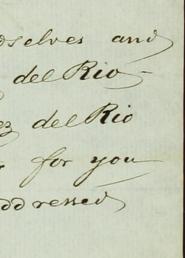 selves and
del Rio
ez del Rio
for you
ddressed